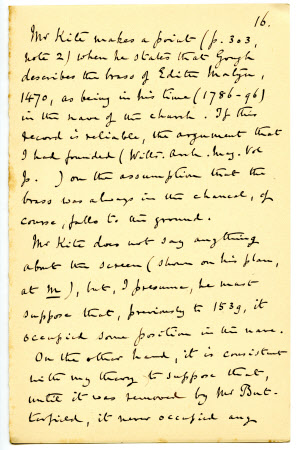 16.
Mr Kite makes a point (p. 303,
note 2) when he states that Gough
describes the brass of Edith Matyn,
1470, as being in his time (1786-96)
in the nave of the church. If this
record is reliable, the argument that
I had founded (Wilts. Arch. Mag. Vol
p. ) on the assumption that the
brass was always in the chancel, of
course, falls to the ground.
Mr Kite does not say anything
about the screen (shown on his plan,
at M), but, I presume, he must
suppose that, previously to 1539, it
occupied some position in the nave.
On the other hand, it is consistent
with my theory to suppose that,
until it was removed by Mr But-
terfield, it never occupied any